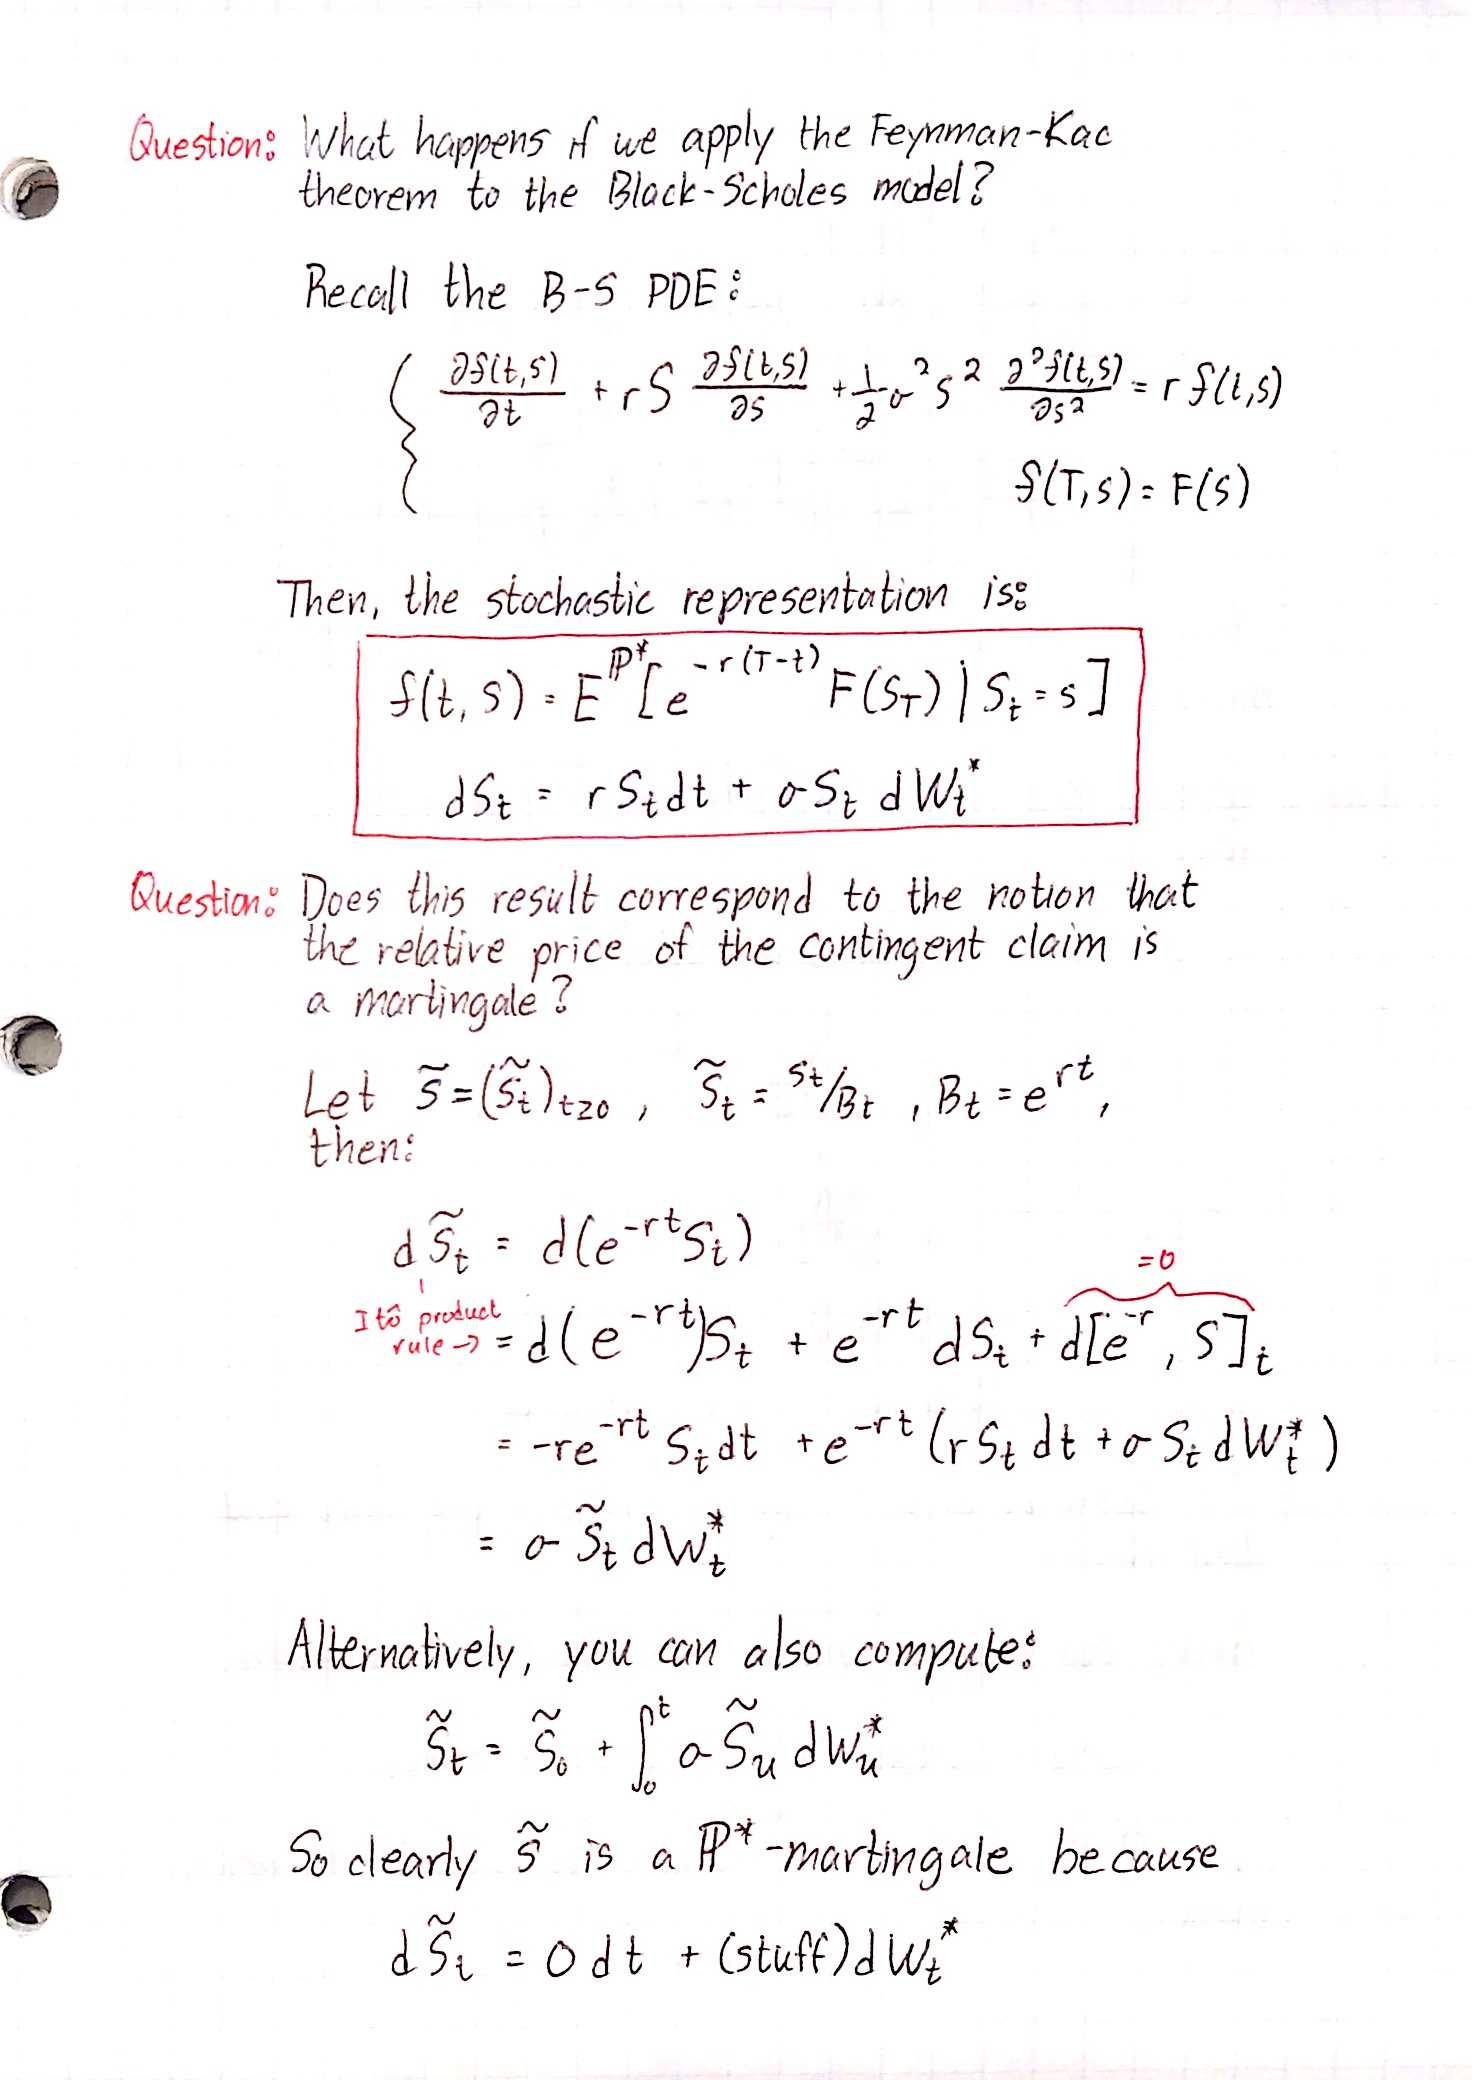 Question: What happens if we apply the Feynman-Kac
theorem to the Black-Scholes model?
Recall the B-S PDE:
{ ∂f(t,s)/∂t + rS ∂f(t,s)/∂s + 1/2 σ² s² ∂²f(t,s)/∂s² = r f(t,s)
f(T,s) = F(s)
Then, the stochastic representation is:
f(t,s) = E^ℙ* [e^-r(T-t) F(S_T) | S_t = s]
dS_t = r S_t dt + σ S_t dW_t*
Question: Does this result correspond to the notion that
the relative price of the contingent claim is
a martingale?
Let S̃ = (S̃_t)_t≥0 , S̃_t = S_t/B_t , B_t = e^rt,
then:
dS̃_t = d(e^-rt S_t)
=0
Itô product
rule → = d(e^-rt)S_t + e^-rt dS_t + d[e^-r, S]_t
= -re^-rt S_t dt + e^-rt (r S_t dt + σ S_t dW_t*)
= σ S̃_t dW_t*
Alternatively, you can also compute:
S̃_t = S̃_0 + ∫_0^t σ S̃_u dW_u*
So clearly S̃ is a ℙ*-martingale because
dS̃_t = 0 dt + (stuff) dW_t*